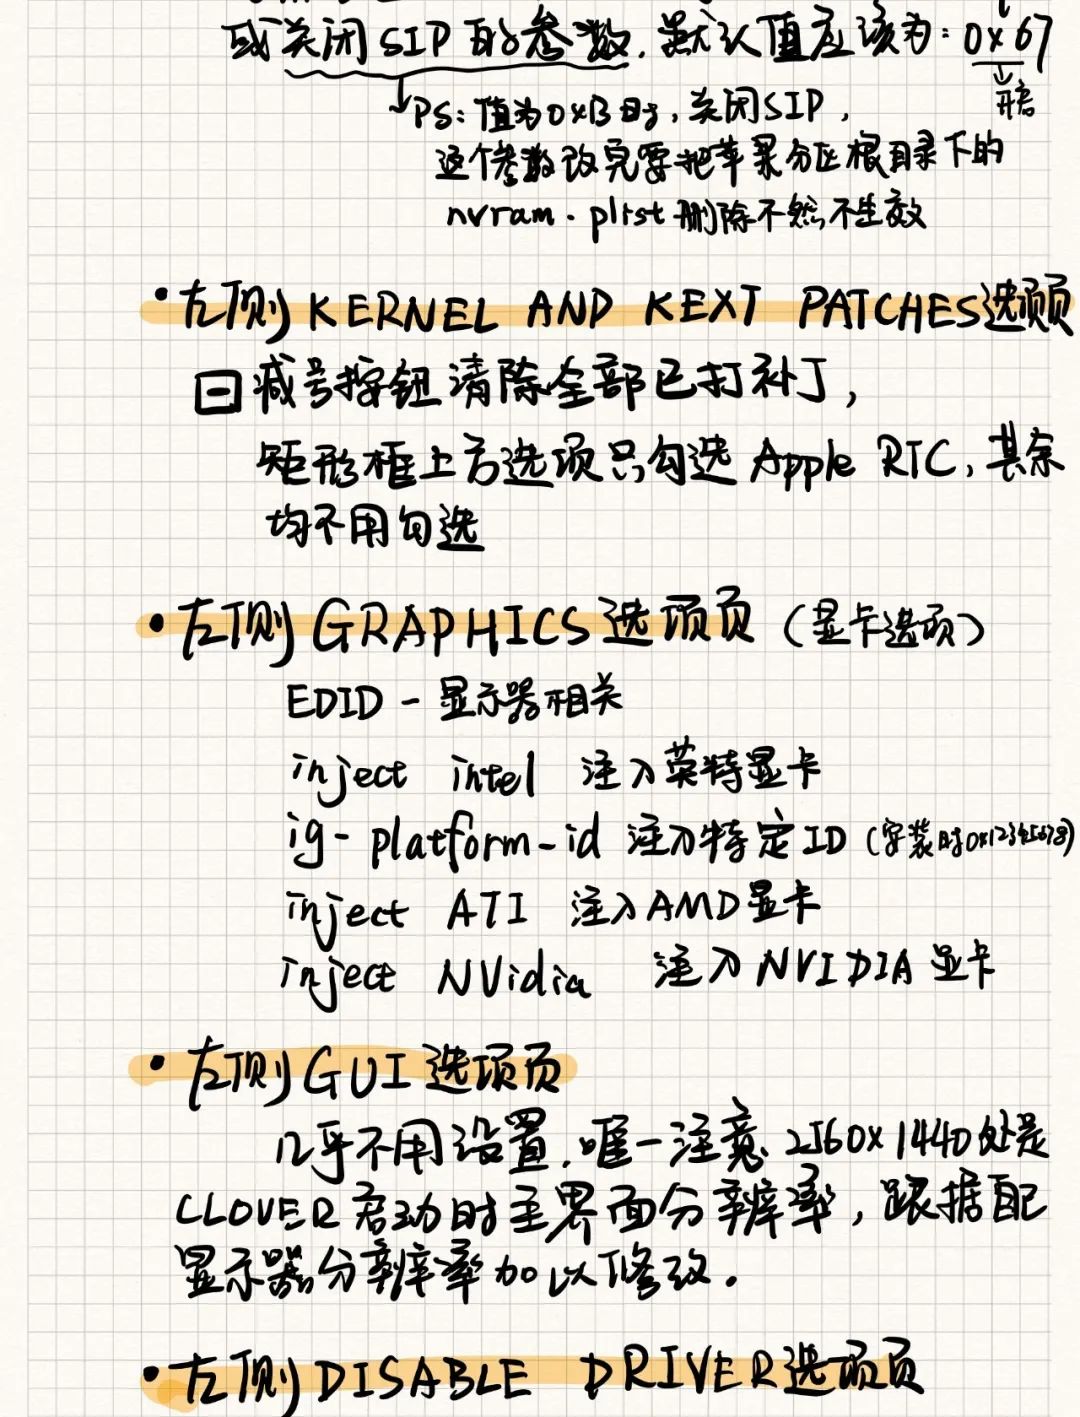 或关闭SIP的参数,默认值应该为:0x67
开启
PS:值为0x13时,关闭SIP,
这个参数改完要把苹果分区根目录下的
nvram.plist删除不然不生效
·左侧KERNEL AND KEXT PATCHES选项页
减号按钮清除全部已打补丁,
矩形框上方选项只勾选Apple RTC,其余
均不用勾选
·左侧GRAPHICS选项页(显卡选项)
EDID-显示器相关
inject intel 注入英特显卡
ig-platform-id 注入特定ID(安装时0x12345678)
inject ATI 注入AMD显卡
inject NVidia 注入NVIDIA显卡
·左侧GUI选项页
几乎不用设置,唯一注意2560x1440处是
CLOVER启动时主界面分辨率,跟据配
显示器分辨率加以修改。
·左侧DISABLE DRIVER选项页